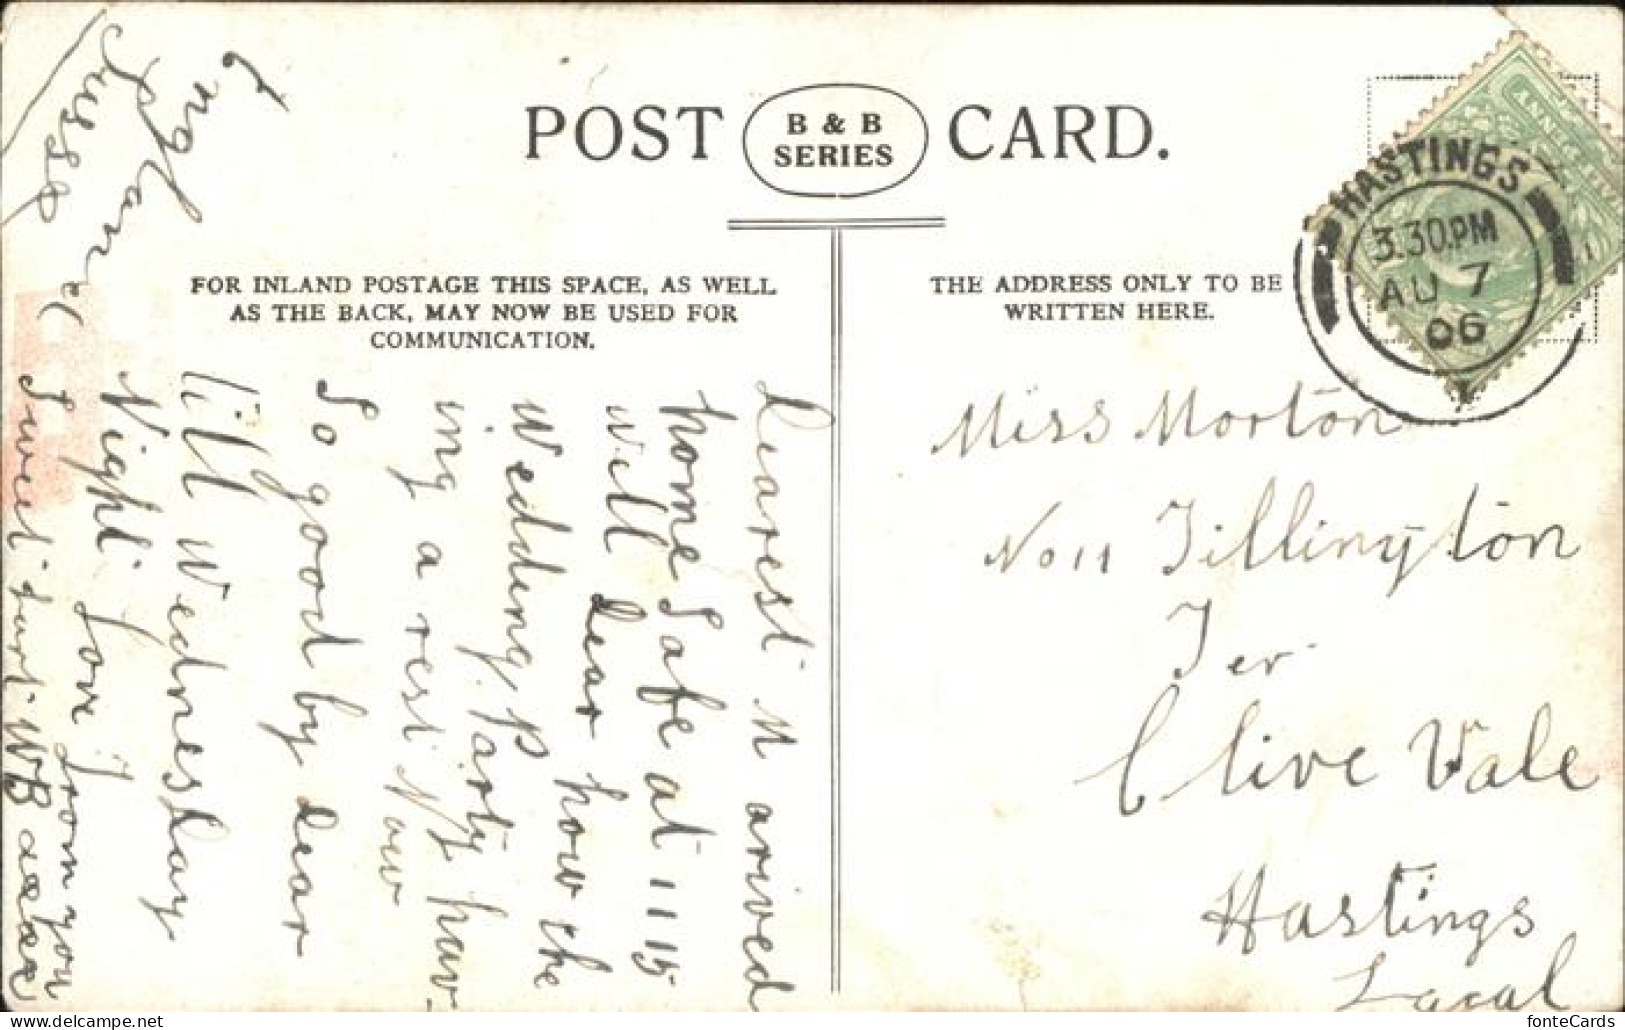 POST CARD.
B & B
SERIES
FOR INLAND POSTAGE THIS SPACE, AS WELL
AS THE BACK, MAY NOW BE USED FOR
COMMUNICATION.
THE ADDRESS ONLY TO BE
WRITTEN HERE.
HASTINGS
3.30.PM
AU 7
06
Miss Morton
No 11 Tillington
Ter
Clive Vale
Hastings
Local
Dearest M arived
home Safe at 11 15
will dear how the
Wedding Party hav
ing a rest Now
So good by dear
till Wednesday
Night Love from your
Sweet hart WB xxxx
England
Sussex
fonteCards
www.delcampe.net